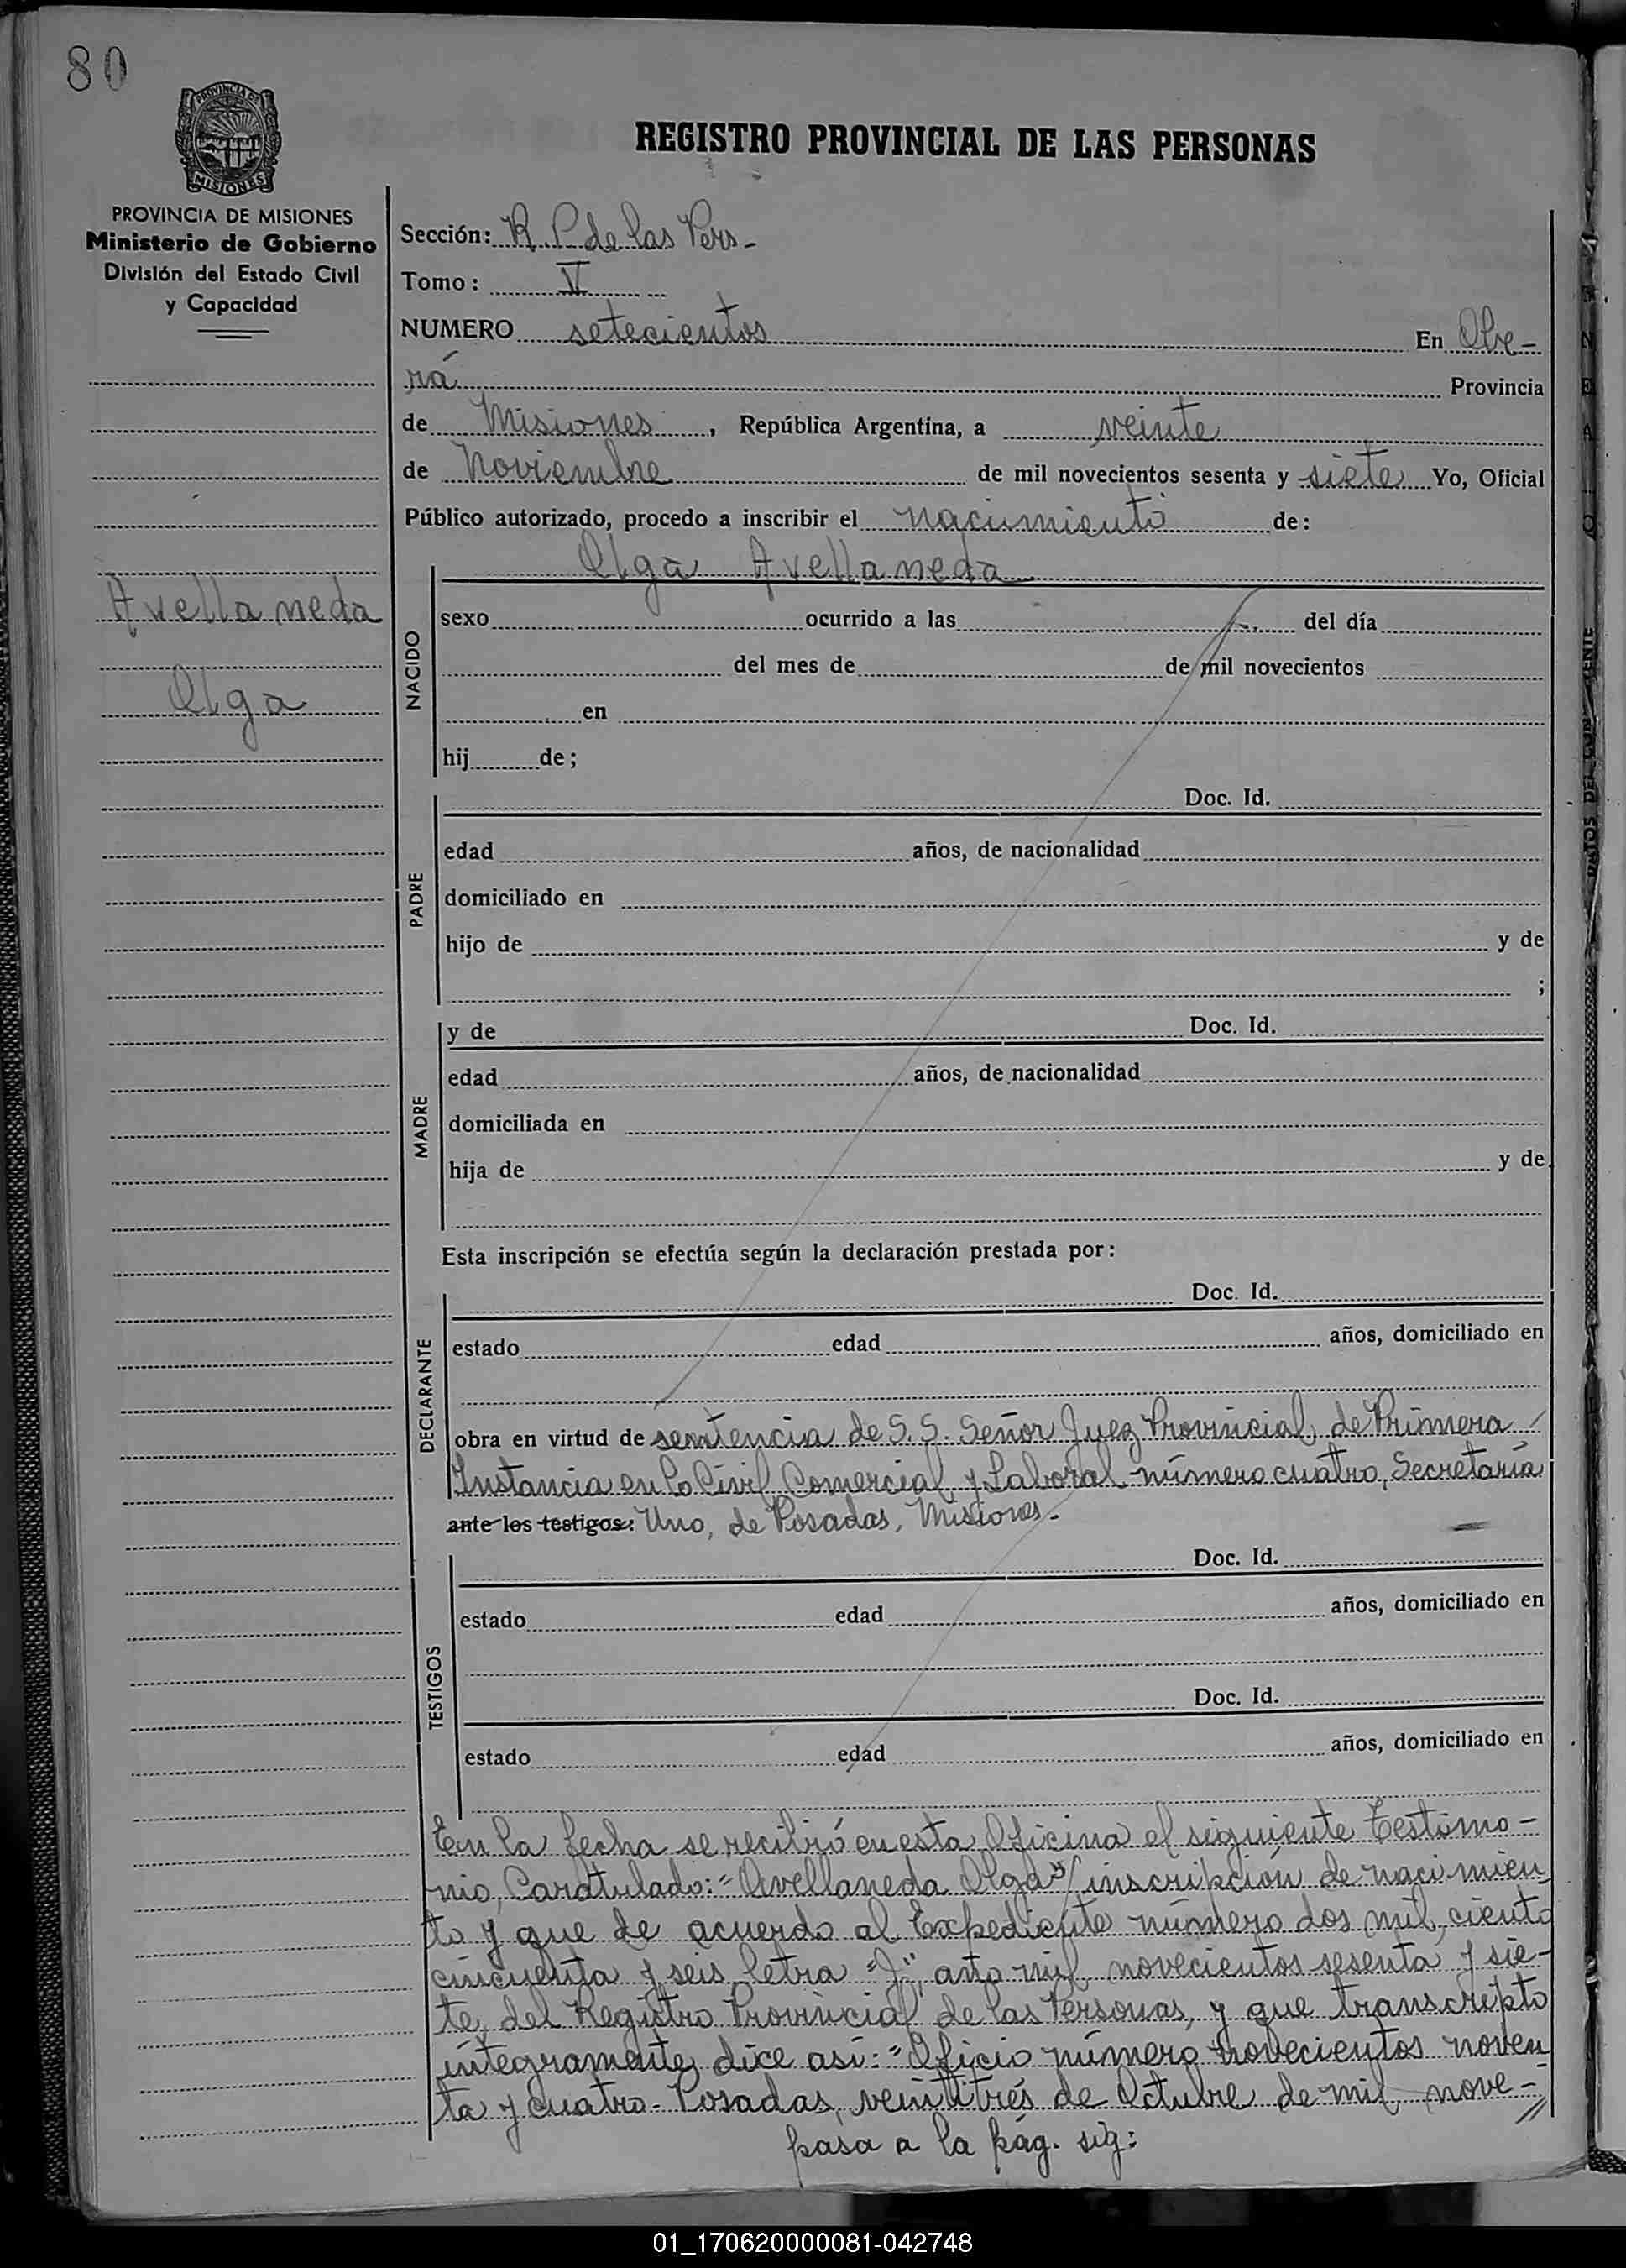 80
PROVINCIA DE
MISIONES
REGISTRO PROVINCIAL DE LAS PERSONAS
PROVINCIA DE MISIONES
Ministerio de Gobierno
División del Estado Civil
y Capacidad
Avellaneda
Olga
Sección: R. P. de las Pers-
Tomo: V
NUMERO setecientos En Obe-
rá Provincia
de Misiones, República Argentina, a veinte
de Noviembre de mil novecientos sesenta y siete Yo, Oficial
Público autorizado, procedo a inscribir el nacimiento de:
Olga Avellaneda
NACIDO
sexo ocurrido a las del día
del mes de de mil novecientos
en
hij de;
PADRE
Doc. Id.
edad años, de nacionalidad
domiciliado en
hijo de y de
;
MADRE
y de Doc. Id.
edad años, de nacionalidad
domiciliada en
hija de y de
Esta inscripción se efectúa según la declaración prestada por:
DECLARANTE
Doc. Id.
estado edad años, domiciliado en
obra en virtud de sentencia de S.S. Señor Juez Provincial de Primera
Instancia en lo Civil Comercial y Laboral número cuatro, Secretaría
ante los testigos: Uno, de Posadas, Misiones.-
TESTIGOS
Doc. Id.
estado edad años, domiciliado en
Doc. Id.
estado edad años, domiciliado en
En la fecha se recibió en esta Oficina el siguiente Testimo-
nio, Caratulado:="Avellaneda Olga"/inscripción de nacimien
to y que de acuerdo al Expediente número dos mil, ciento
cincuenta y seis letra "J", año mil novecientos sesenta y sie-
te, del Registro Provincial de las Personas, y que transcripto
íntegramente dice así:="Oficio número novecientos noven
ta y cuatro- Posadas, veintitrés de Octubre de mil nove-//
pasa a la pág. sig:
DATOS DEL CONTRAYENTE
01_170620000081-042748